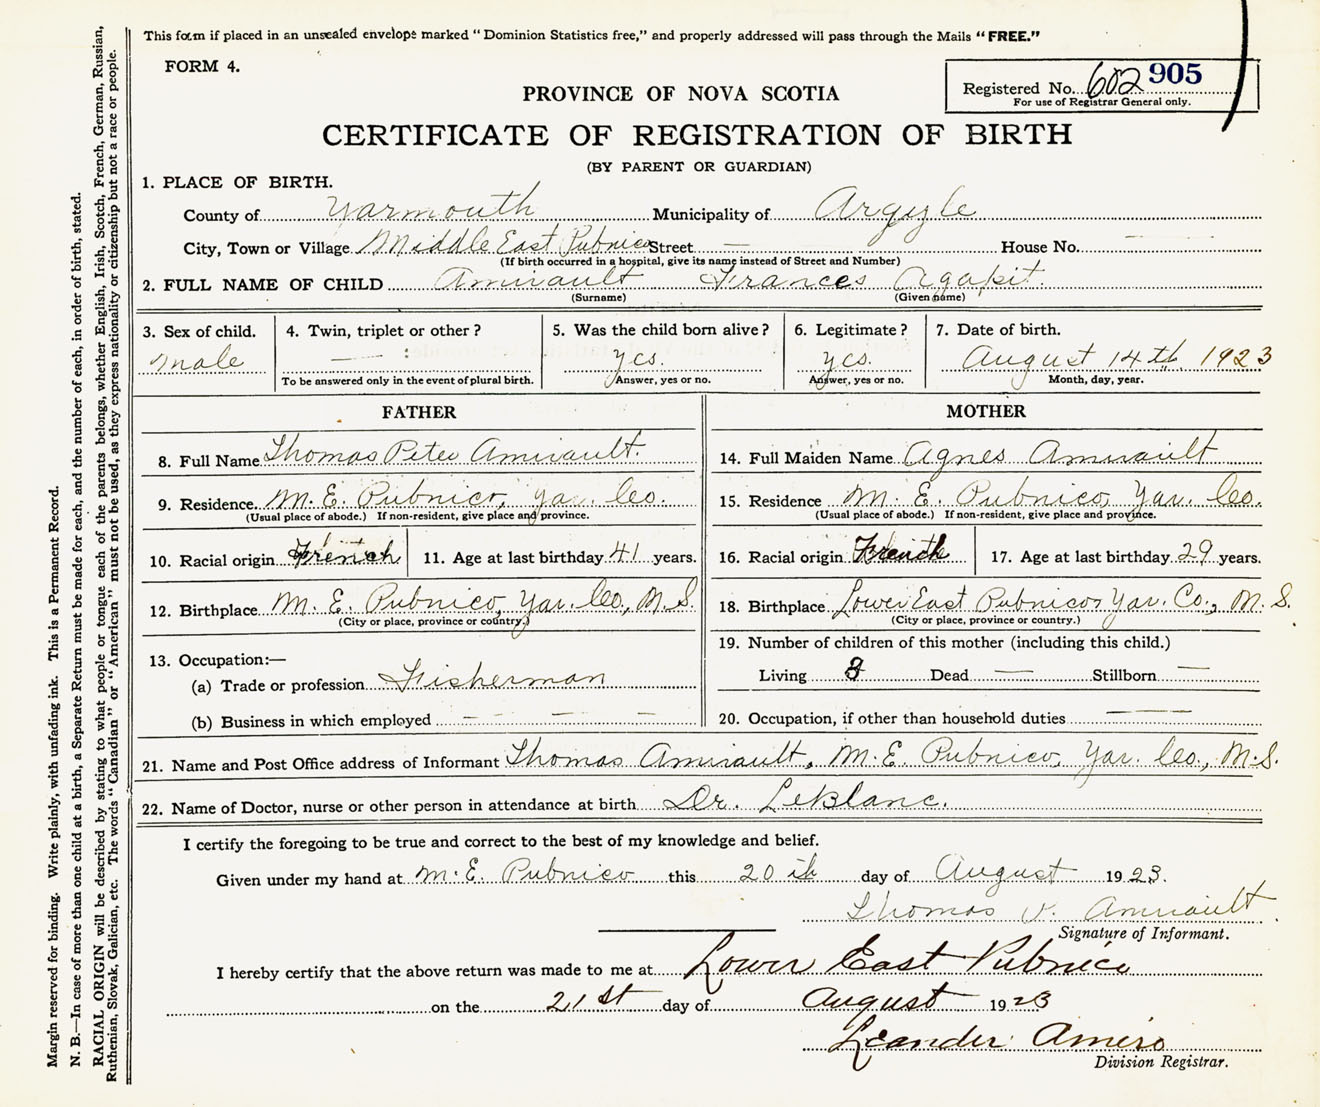 This form if placed in an unsealed envelope marked "Dominion Statistics free," and properly addressed will pass through the Mails "FREE."
FORM 4.
Registered No. 602 905
For use of Registrar General only.
PROVINCE OF NOVA SCOTIA
CERTIFICATE OF REGISTRATION OF BIRTH
(BY PARENT OR GUARDIAN)
1. PLACE OF BIRTH.
County of Yarmouth Municipality of Argyle
City, Town or Village Middle East Pubnico Street — House No. —
(If birth occurred in a hospital, give its name instead of Street and Number)
2. FULL NAME OF CHILD Amirault Frances Agapit.
(Surname) (Given name)
3. Sex of child. 4. Twin, triplet or other? 5. Was the child born alive? 6. Legitimate? 7. Date of birth.
male — yes. yes. August 14th, 1923
To be answered only in the event of plural birth. Answer, yes or no. Answer, yes or no. Month, day, year.
FATHER MOTHER
8. Full Name Thomas Peter Amirault. 14. Full Maiden Name Agnes Amirault
9. Residence M. E. Pubnico, Yar. Co. 15. Residence M. E. Pubnico, Yar. Co.
(Usual place of abode.) If non-resident, give place and province. (Usual place of abode.) If non-resident, give place and province.
10. Racial origin French 11. Age at last birthday 41 years. 16. Racial origin French 17. Age at last birthday 29 years.
12. Birthplace M. E. Pubnico, Yar. Co., N.S. 18. Birthplace Lower East Pubnico, Yar. Co., N. S.
(City or place, province or country.) (City or place, province or country.)
19. Number of children of this mother (including this child.)
13. Occupation:—
(a) Trade or profession Fisherman Living Dead — Stillborn —
(b) Business in which employed — — — 20. Occupation, if other than household duties —
21. Name and Post Office address of Informant Thomas Amirault, M. E. Pubnico, Yar. Co., N.S.
22. Name of Doctor, nurse or other person in attendance at birth Dr. LeBlanc.
I certify the foregoing to be true and correct to the best of my knowledge and belief.
Given under my hand at M. E. Pubnico this 20th day of August 1923.
Thomas Amirault
Signature of Informant.
I hereby certify that the above return was made to me at Lower East Pubnico
on the 21st day of August 1923
Leander Amiro
Division Registrar.
Margin reserved for binding. Write plainly, with unfading ink. This is a Permanent Record.
N. B.—In case of more than one child at a birth, a Separate Return must be made for each, and the number of each, in order of birth, stated.
RACIAL ORIGIN will be described by stating to what people or tongue each of the parents belongs, whether English, Irish, Scotch, French, German, Russian,
Ruthenian, Slovak, Galician, etc. The words "Canadian" or "American" must not be used, as they express nationality or citizenship but not a race or people.